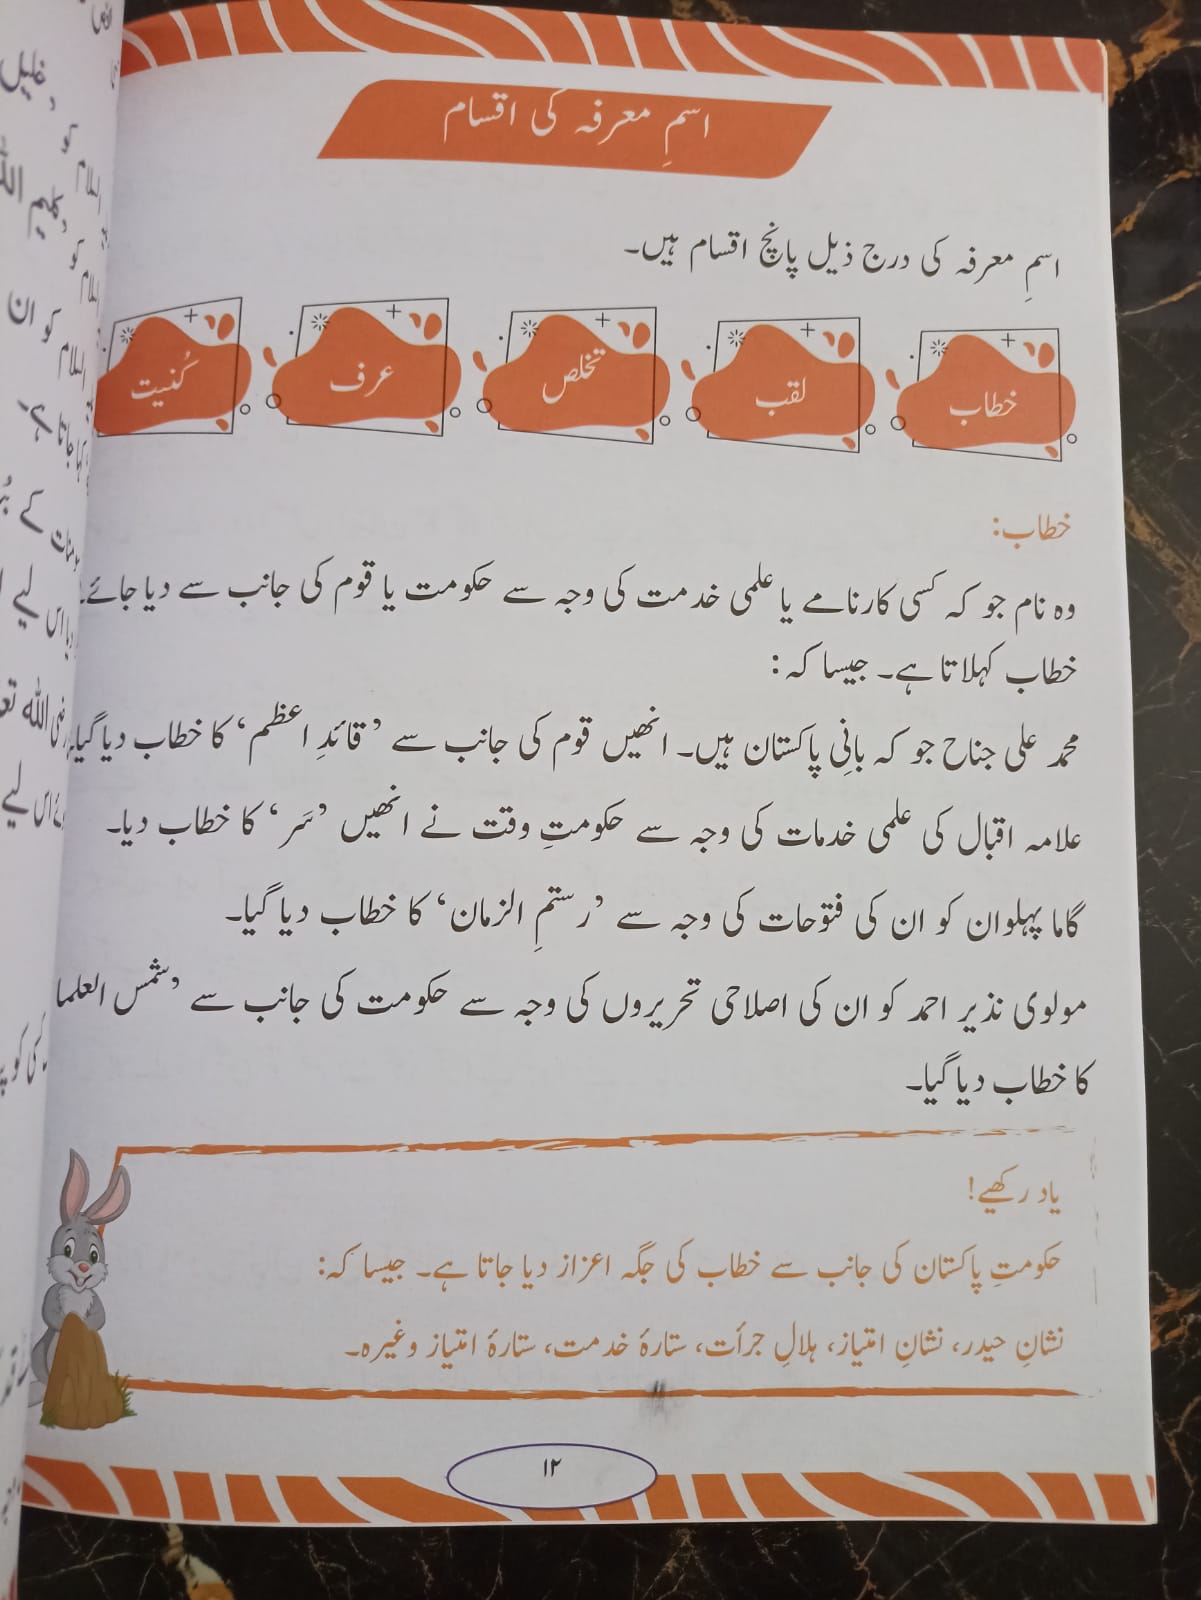 اسمِ معرفہ کی اقسام
اسمِ معرفہ کی درج ذیل پانچ اقسام ہیں۔
خطاب
لقب
تخلص
عرف
کُنیت
خطاب:
وہ نام جو کہ کسی کارنامے یا علمی خدمت کی وجہ سے حکومت یا قوم کی جانب سے دیا جائے
خطاب کہلاتا ہے۔ جیسا کہ:
محمد علی جناح جو کہ بانیِ پاکستان ہیں۔ انھیں قوم کی جانب سے ’قائدِ اعظم‘ کا خطاب دیا گیا
علامہ اقبال کی علمی خدمات کی وجہ سے حکومتِ وقت نے انھیں ’سَر‘ کا خطاب دیا۔
گاما پہلوان کو ان کی فتوحات کی وجہ سے ’رستمِ الزمان‘ کا خطاب دیا گیا۔
مولوی نذیر احمد کو ان کی اصلاحی تحریروں کی وجہ سے حکومت کی جانب سے ’شمس العلما
کا خطاب دیا گیا۔
یاد رکھیے!
حکومتِ پاکستان کی جانب سے خطاب کی جگہ اعزاز دیا جاتا ہے۔ جیسا کہ:
نشانِ حیدر، نشانِ امتیاز، ہلالِ جرأت، ستارۂ خدمت، ستارۂ امتیاز وغیرہ۔
۱۲